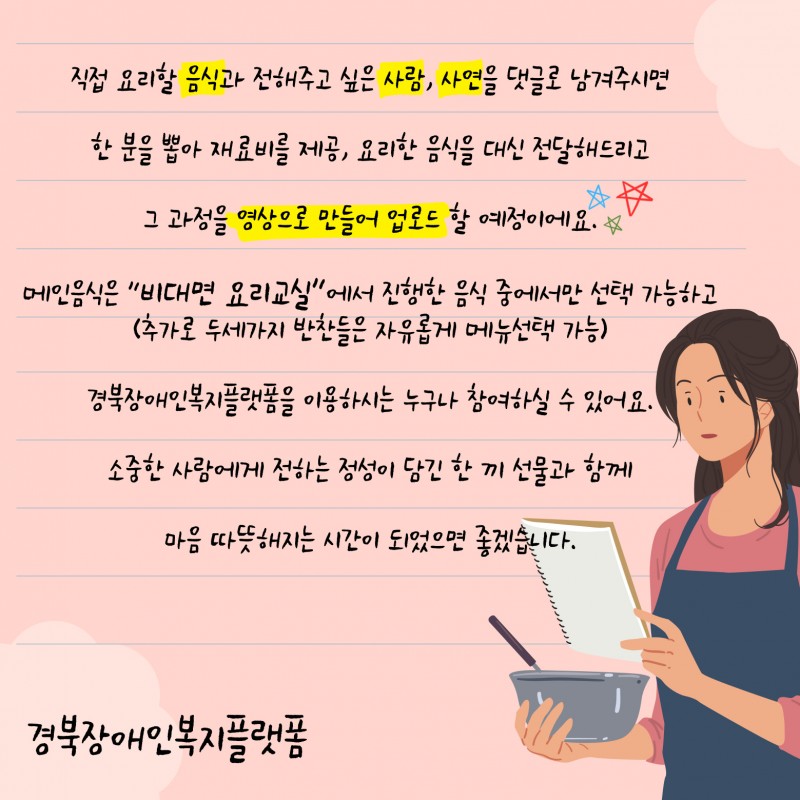 직접 요리할 음식과 전해주고 싶은 사람, 사연을 댓글로 남겨주시면
한 분을 뽑아 재료비를 제공, 요리한 음식을 대신 전달해드리고
그 과정을 영상으로 만들어 업로드 할 예정이에요.
메인음식은 "비대면 요리교실"에서 진행한 음식 중에서만 선택 가능하고
(추가로 두세가지 반찬들은 자유롭게 메뉴선택 가능)
경북장애인복지플랫폼을 이용하시는 누구나 참여하실 수 있어요.
소중한 사람에게 전하는 정성이 담긴 한 끼 선물과 함께
마음 따뜻해지는 시간이 되었으면 좋겠습니다.
경북장애인복지플랫폼